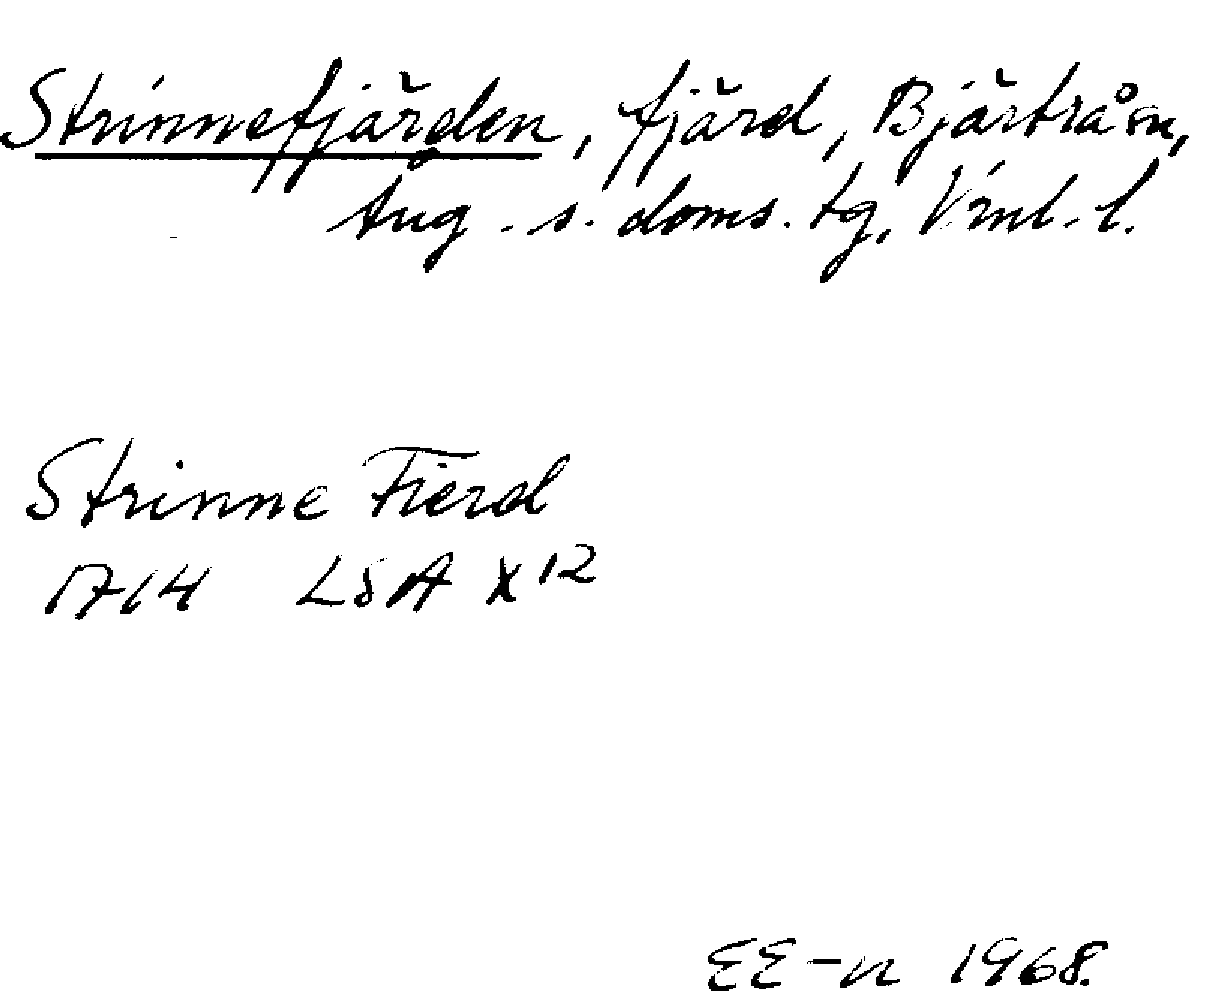 Strinnefjärden, fjärd, Bjärtrå sn,
Ång. s. doms. tg, Vnl. l.
Strinne Fierd
1714 LSA X 12
EE-n 1968.